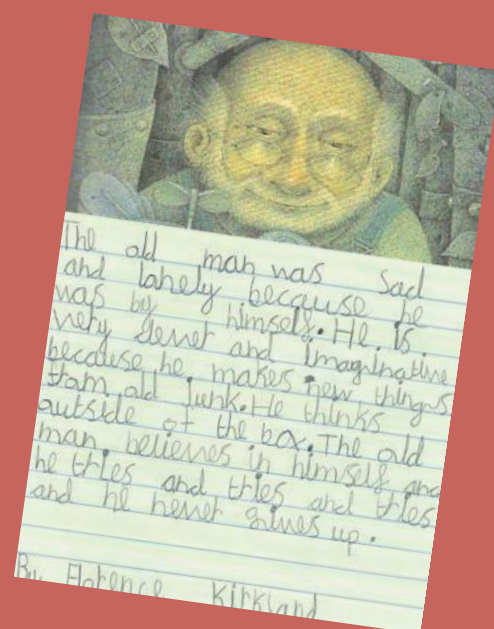 The old man was sad
and lonely because he
was by himself. He is
very clever and imaginative
because he makes new things
from old junk. He thinks
outside of the box. The old
man believes in himself and
he tries and tries and tries
and he never gives up.
By Florence Kirkland